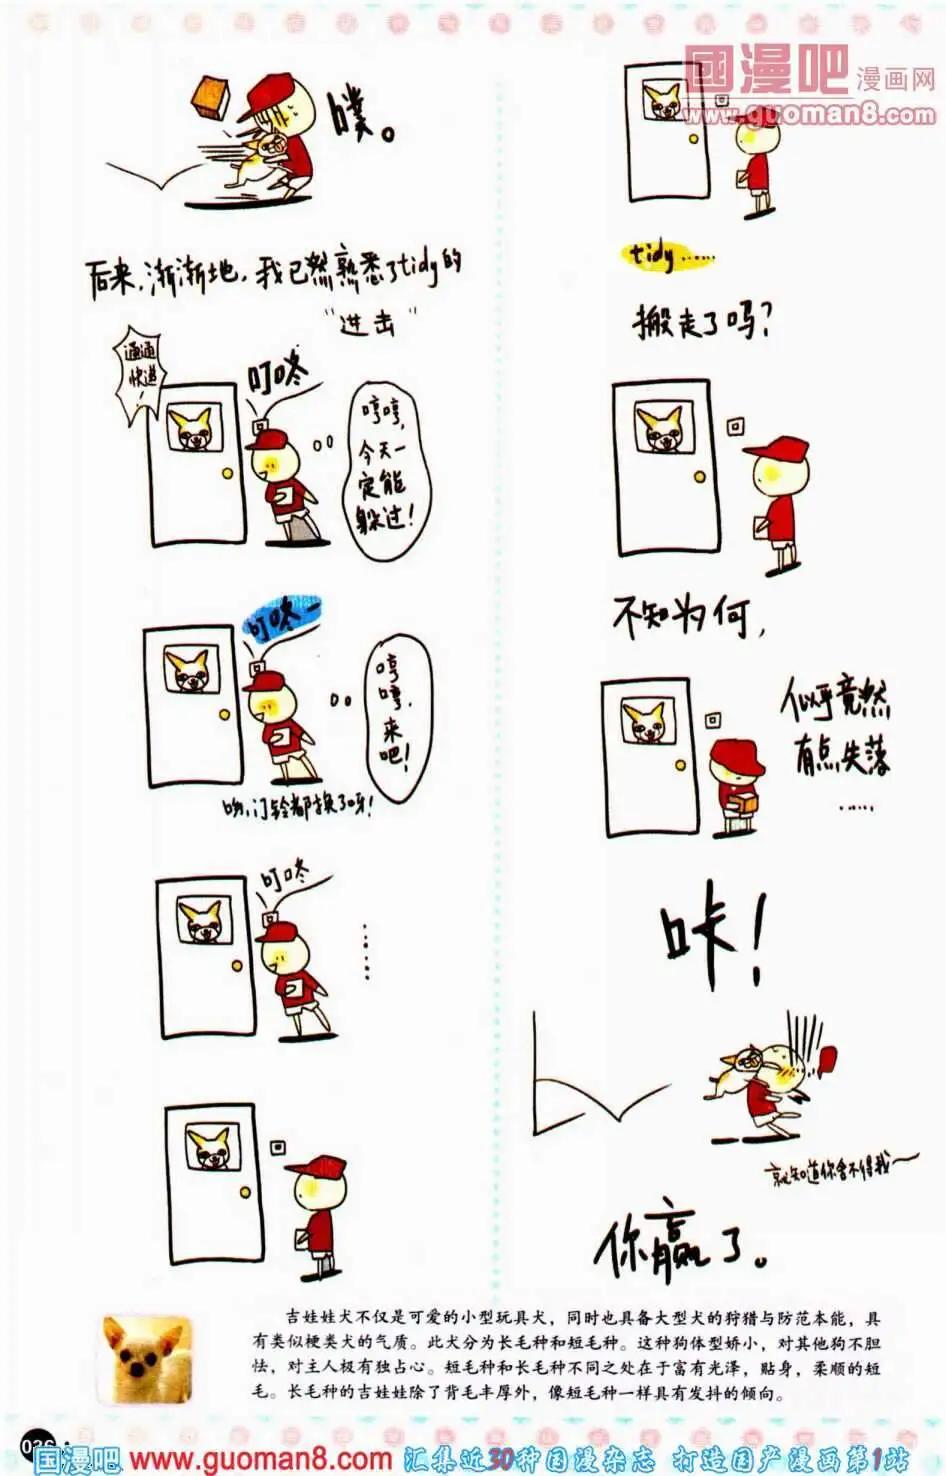 噗。
后来,渐渐地,我已然熟悉了tidy的
“进击”
通通
快递
!
叮咚
哼哼,
今天一
定能
躲过!
叮咚—
哼
哼,
来
吧!
哟,门铃都换了呀!
叮咚
……
國漫吧漫画网
www.guoman8.com
tidy……
搬走了吗?
不知为何,
似乎竟然
有点失落
……
咔!
就知道你舍不得我~
你赢了。
吉娃娃犬不仅是可爱的小型玩具犬,同时也具备大型犬的狩猎与防范本能,具
有类似梗类犬的气质。此犬分为长毛种和短毛种。这种狗体型娇小,对其他狗不胆
怯,对主人极有独占心。短毛种和长毛种不同之处在于富有光泽,贴身,柔顺的短
毛。长毛种的吉娃娃除了背毛丰厚外,像短毛种一样具有发抖的倾向。
国漫吧 www.guoman8.com 汇集近30种国漫杂志 打造国产漫画第1站